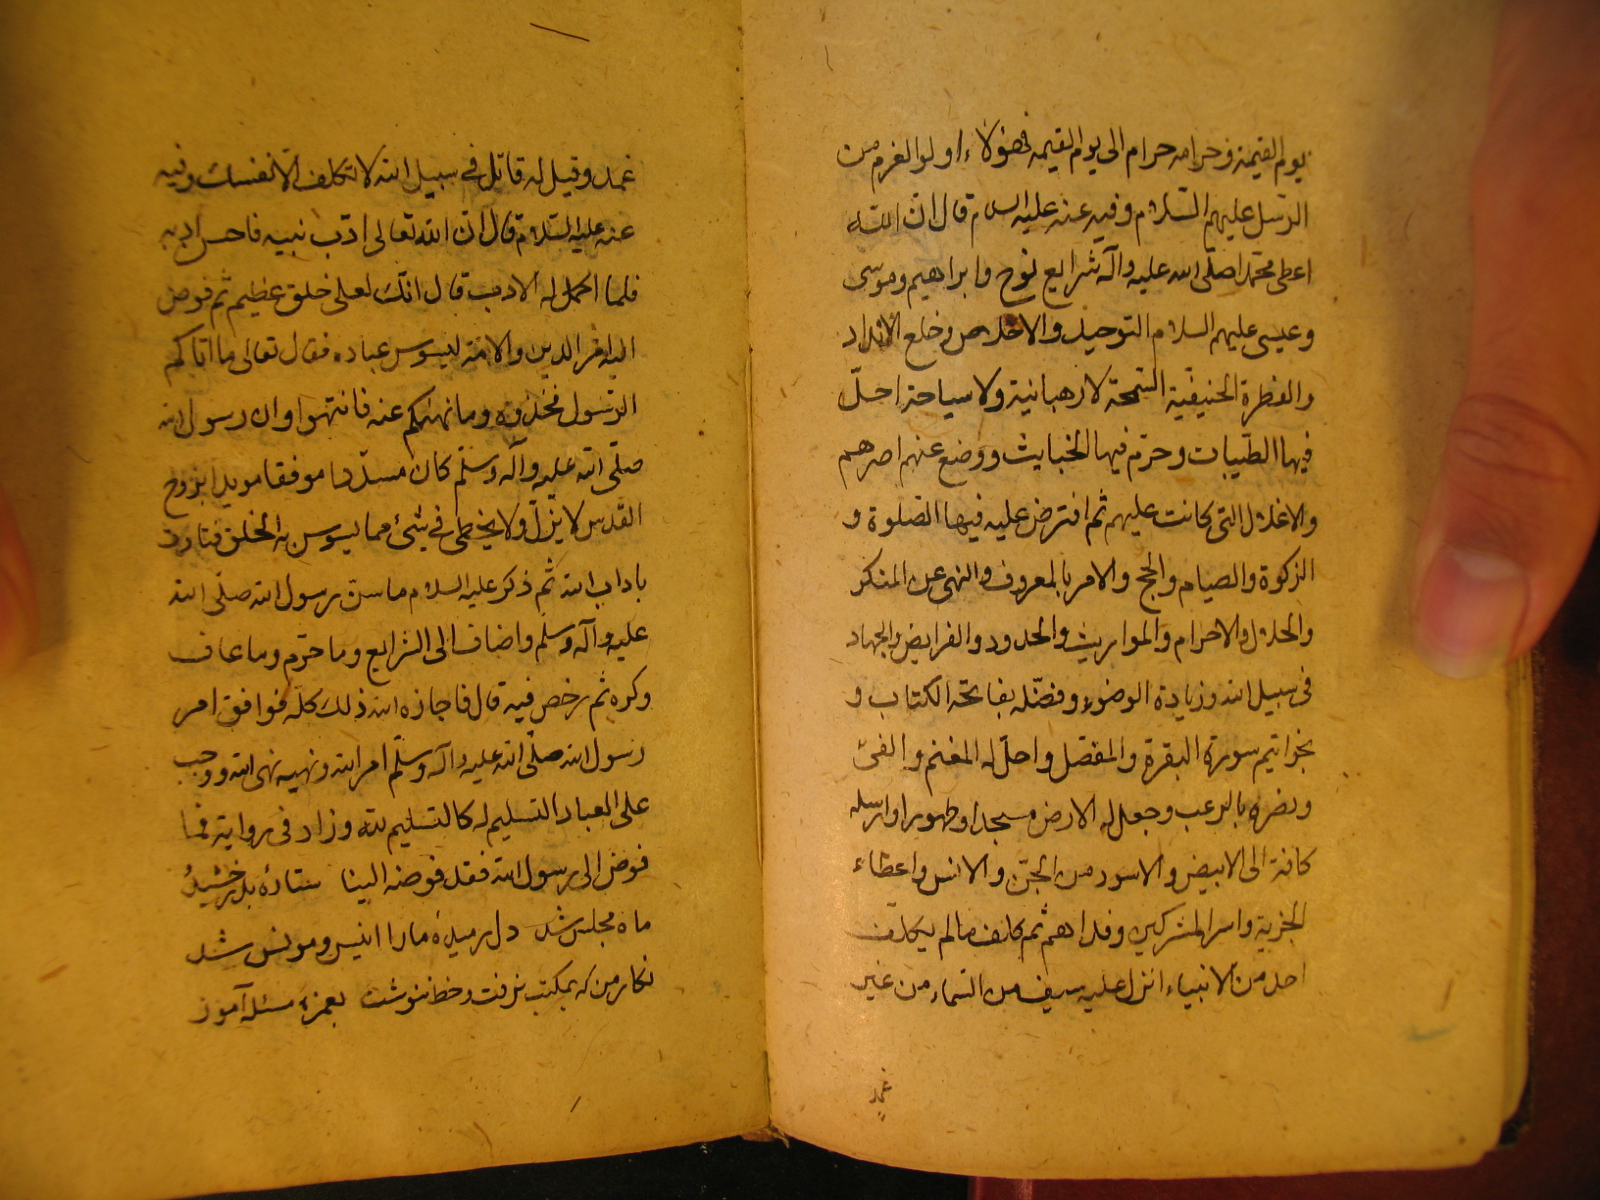 يوم القيمة وحرامه حرام الى يوم القيمه فهؤلاء اولوا لعزم من
الرسل عليهم السّلام وفيه عنه عليه السلام قال انّ اللّه
اعطى محمّدا صلّى الله عليه وآله شرايع نوح وابراهيم وموسى
وعيسى عليهم السلام التوحيد والاخلاص وخلع الانداد
والفطرة الحنيفيّة السّمحة لا رهبانية ولا سياحة احلّ
فيها الطّيبات وحرّم فيها الخبايث ووضع عنهم اصرهم
والاغلال التى كانت عليهم ثم افترض عليه فيها الصّلوة و
الزكوة والصيام والحج والامر بالمعروف والنهى عن المنكر
والحلال والاحرام والمواريث والحدود والفرايض والجهاد
فى سبيل الله وزيادة الوضوء وفضّله بفاتحة الكتاب و
بخواتيم سورة البقرة والمفصّل واحلّ له المغنم والفىء
ونصره بالرعب وجعل له الارض مسجدا وطهورا وارسله
كافة الى الابيض والاسود من الجنّ والانس واعطاه
الجزية واسر المشركين وفداهم ثم كلف ما لم يكلّف
احد من الانبياء انزل عليه سيف من السّماء من غير
غمد
غمد وقيل له قاتل فى سبيل الله لا تكلف الا نفسك وفيه
عنه عليه السّلام قال انّ الله تعالى ادّب نبيه فاحسن ادبه
فلما اكمل له الادب قال انّك لعلى خلق عظيم ثم فوض
اليه امر الدين والامّة ليسوس عباده فقال تعالى ما اتاكم
الرّسول فخذوه وما نهيكم عنه فانتهوا وان رسول الله
صلّى الله عليه وآله وسلّم كان مسدّدا موفقا مويدا بروح
القدس لا يزلّ ولا يخطى فى شىء مما يسوس به الخلق فتادّب
باداب الله ثم ذكر عليه السلام ما سنّ رسول الله صلّى الله
عليه وآله وسلّم واضاف الى الشرايع وما حرّم وما عاف
وكره ثم رخص فيه قال فاجازه الله ذلك كلّه فوافق امر
رسول الله صلّى الله عليه وآله وسلّم امر الله ونهيه نهى الله ووجب
على العباد التسليم له كالتسليم للّه وزاد فى رواية فما
فوّض الى رسول الله فقد فوضه الينا ستاره بدرخشيد
ماه مجلس شد دل رميدهٔ مارا انيس ومونس شد
نكار من كه بمكتب نرفت وخط ننوشت بغمزه مسئله آموز